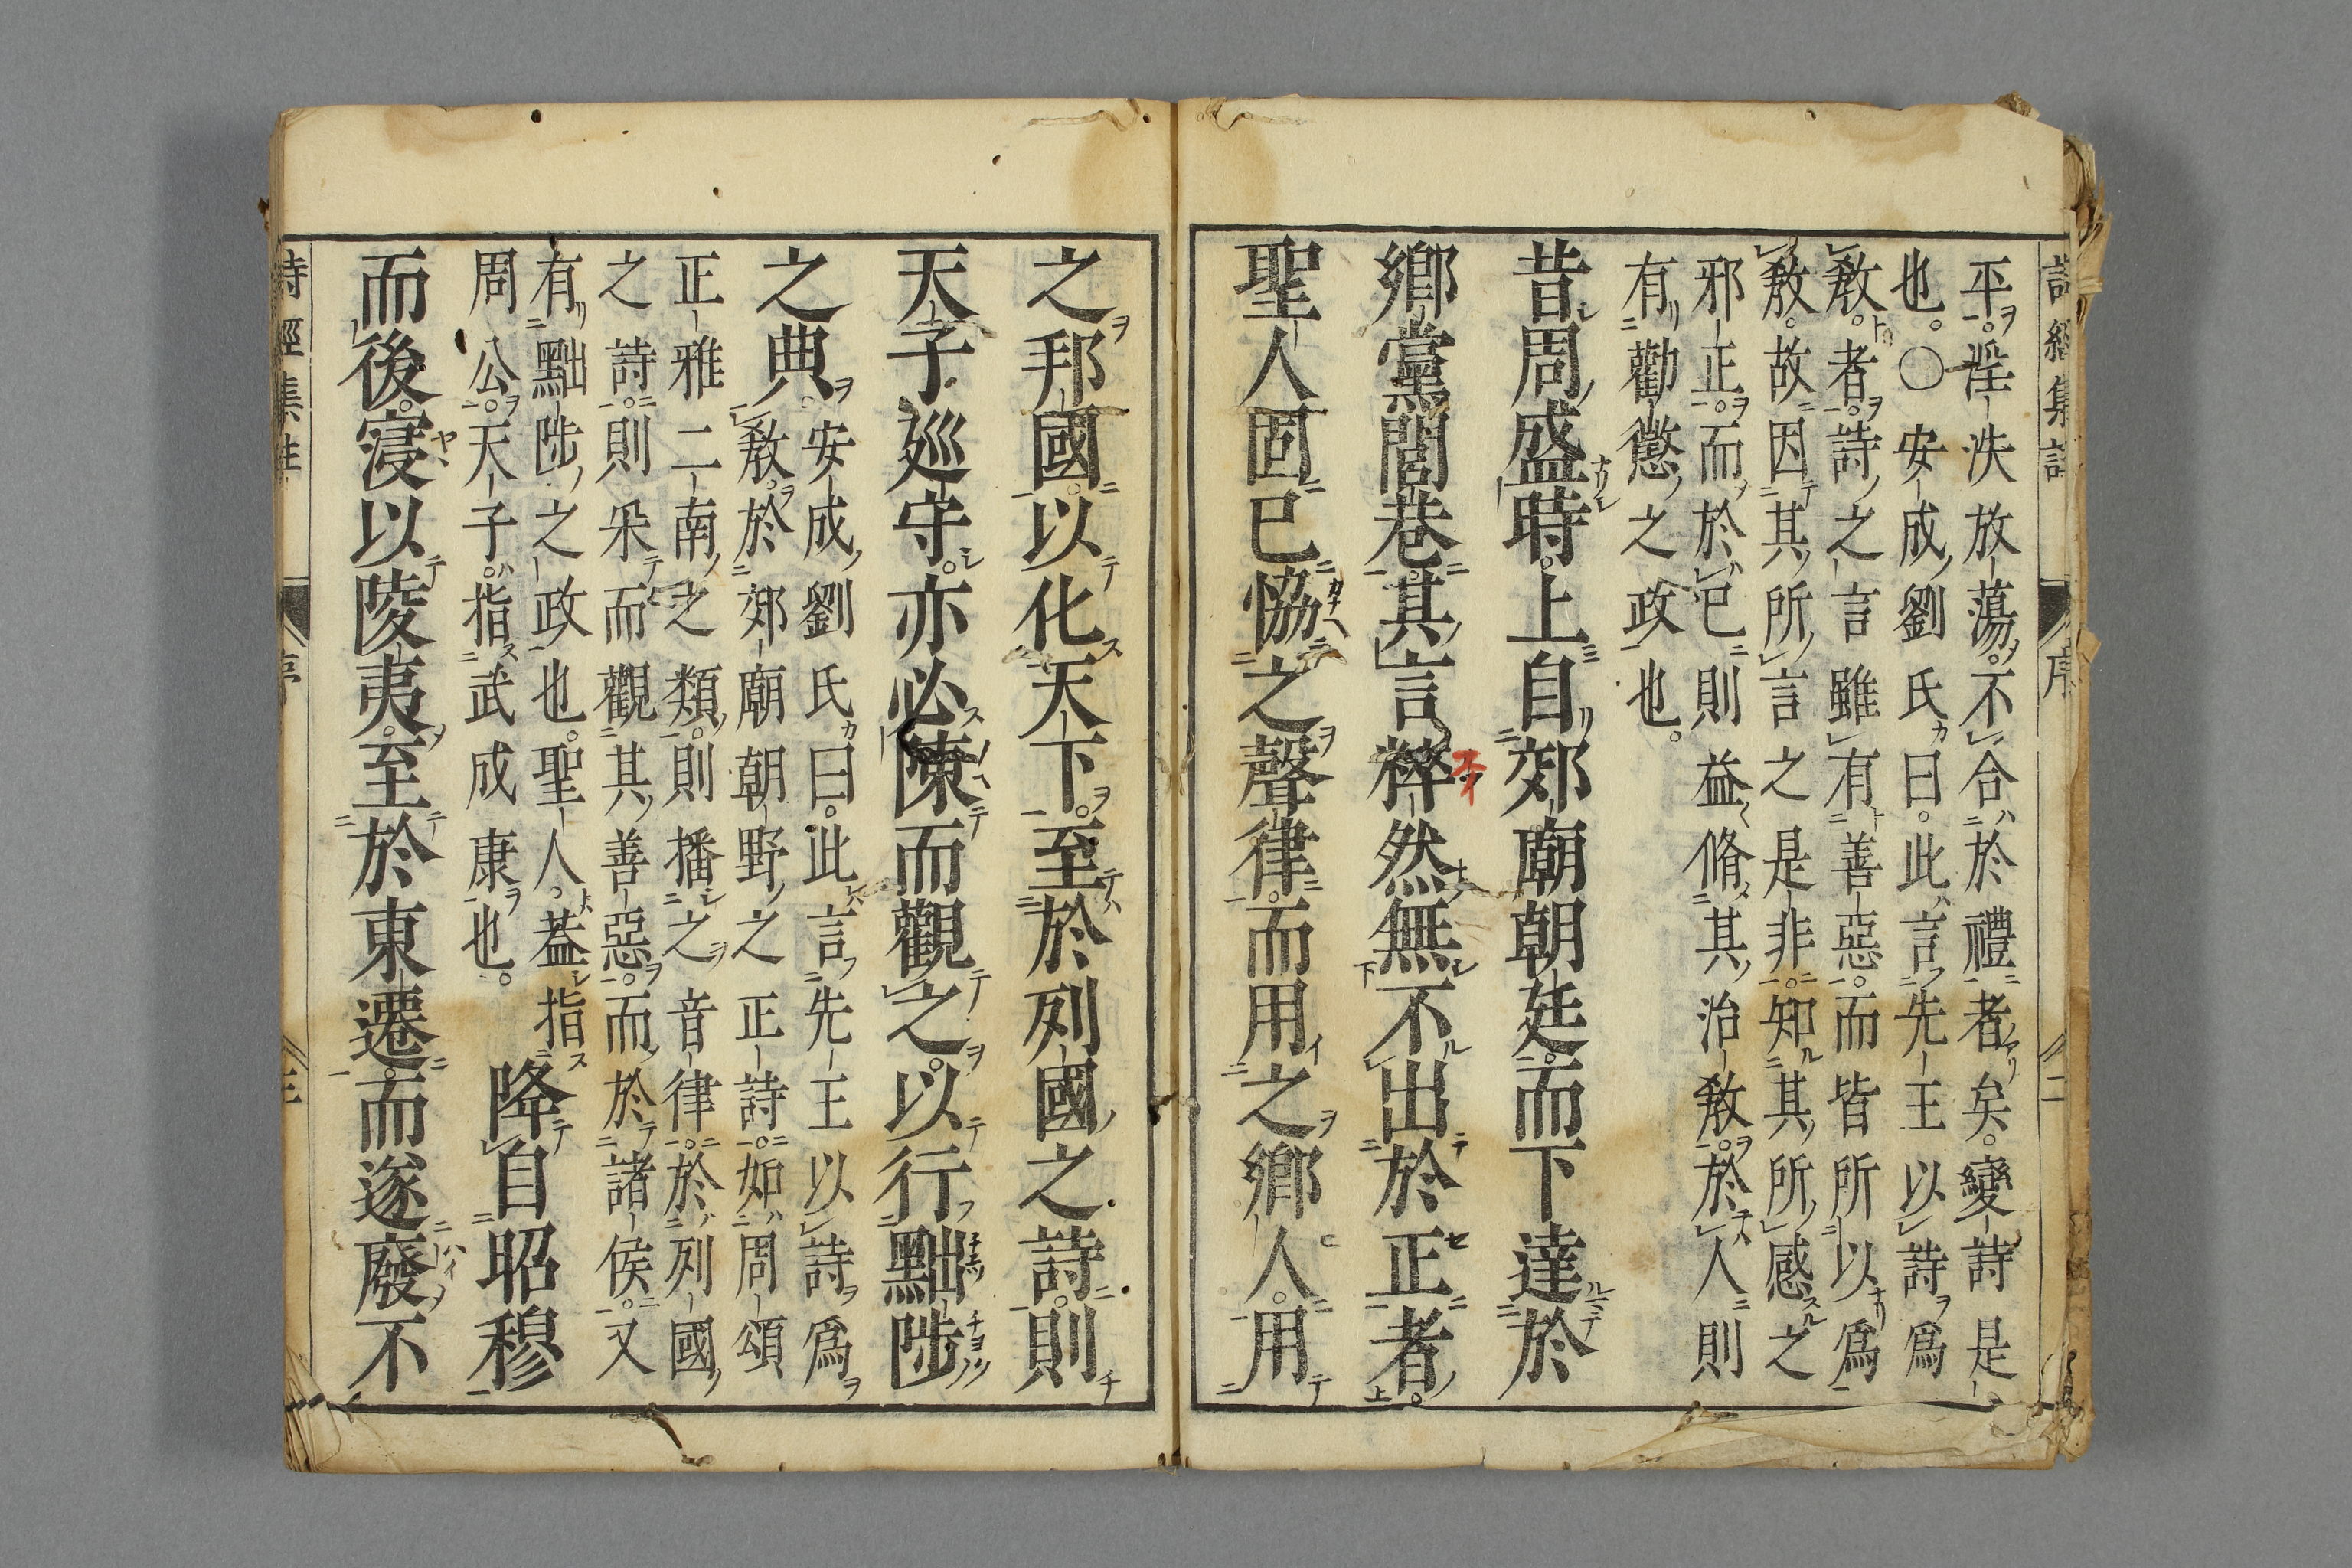 詩經集註
序
二
平淫泆放蕩不合於禮者矣變詩是
也○安成劉氏曰此言先王以詩爲
敎者詩之言雖有善惡而皆所以爲
敎故因其所言之是非知其所感之
邪正而於已則益脩其治敎於人則
有勸懲之政也
昔周盛時上自郊廟朝廷而下達於
鄉黨閭巷其言粹然無不出於正者
聖人固已恊之聲律而用之鄉人用
之邦國以化天下至於列國之詩則
天子廵守亦必陳而觀之以行黜陟
之典
安成劉氏曰此言先王以詩爲
敎於郊廟朝野之正詩如周頌
正雅二南之類則播之音律於列國
之詩則采而觀其善惡而於諸侯又
有黜陟之政也聖人葢指
周公天子指武成康也
降自昭穆
而後寖以陵夷至於東遷而遂廢不
詩經集註
序
三